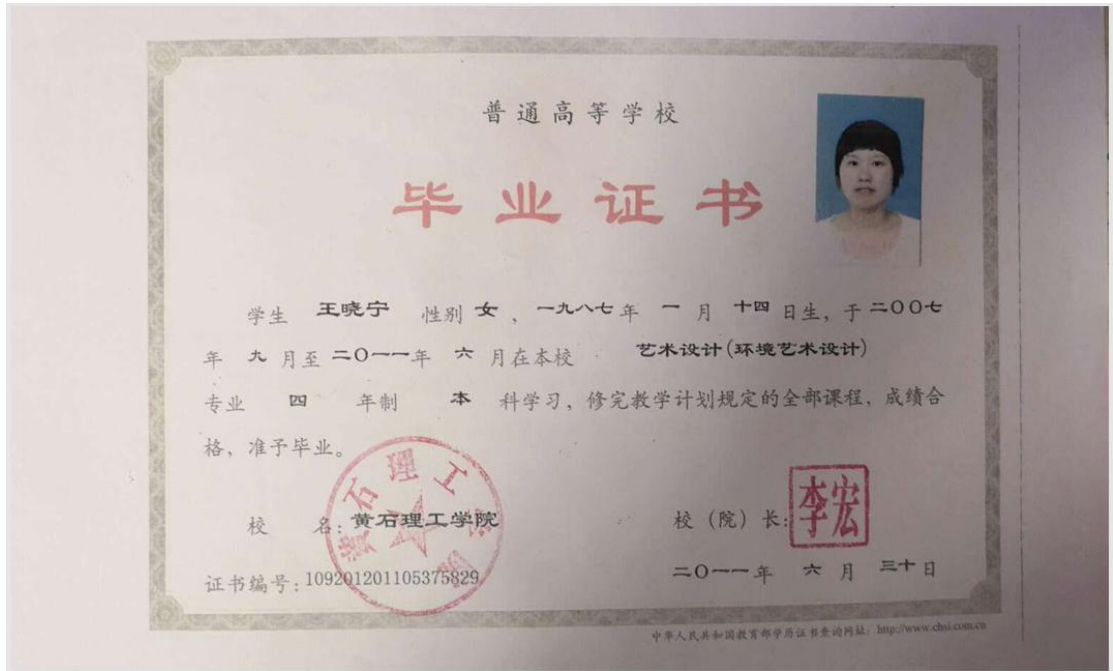 普通高等学校
毕业证书
学生 王晓宁 性别 女，一九八七年 一 月 十四 日生，于二00七
年 九 月至二0一一年 六 月在本校 艺术设计(环境艺术设计)
专业 四 年制 本 科学习，修完教学计划规定的全部课程，成绩合
格，准予毕业。
黄石理工学院
校 名：黄石理工学院 校（院）长：李宏
证书编号：109201201105375829 二0一一年 六 月 三十日
中华人民共和国教育部学历证书查询网址：http://www.chsi.com.cn